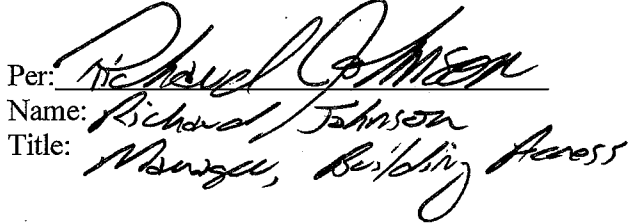 Per: Richard Johnson
Name: Richard Johnson
Title: Manager, Building Access